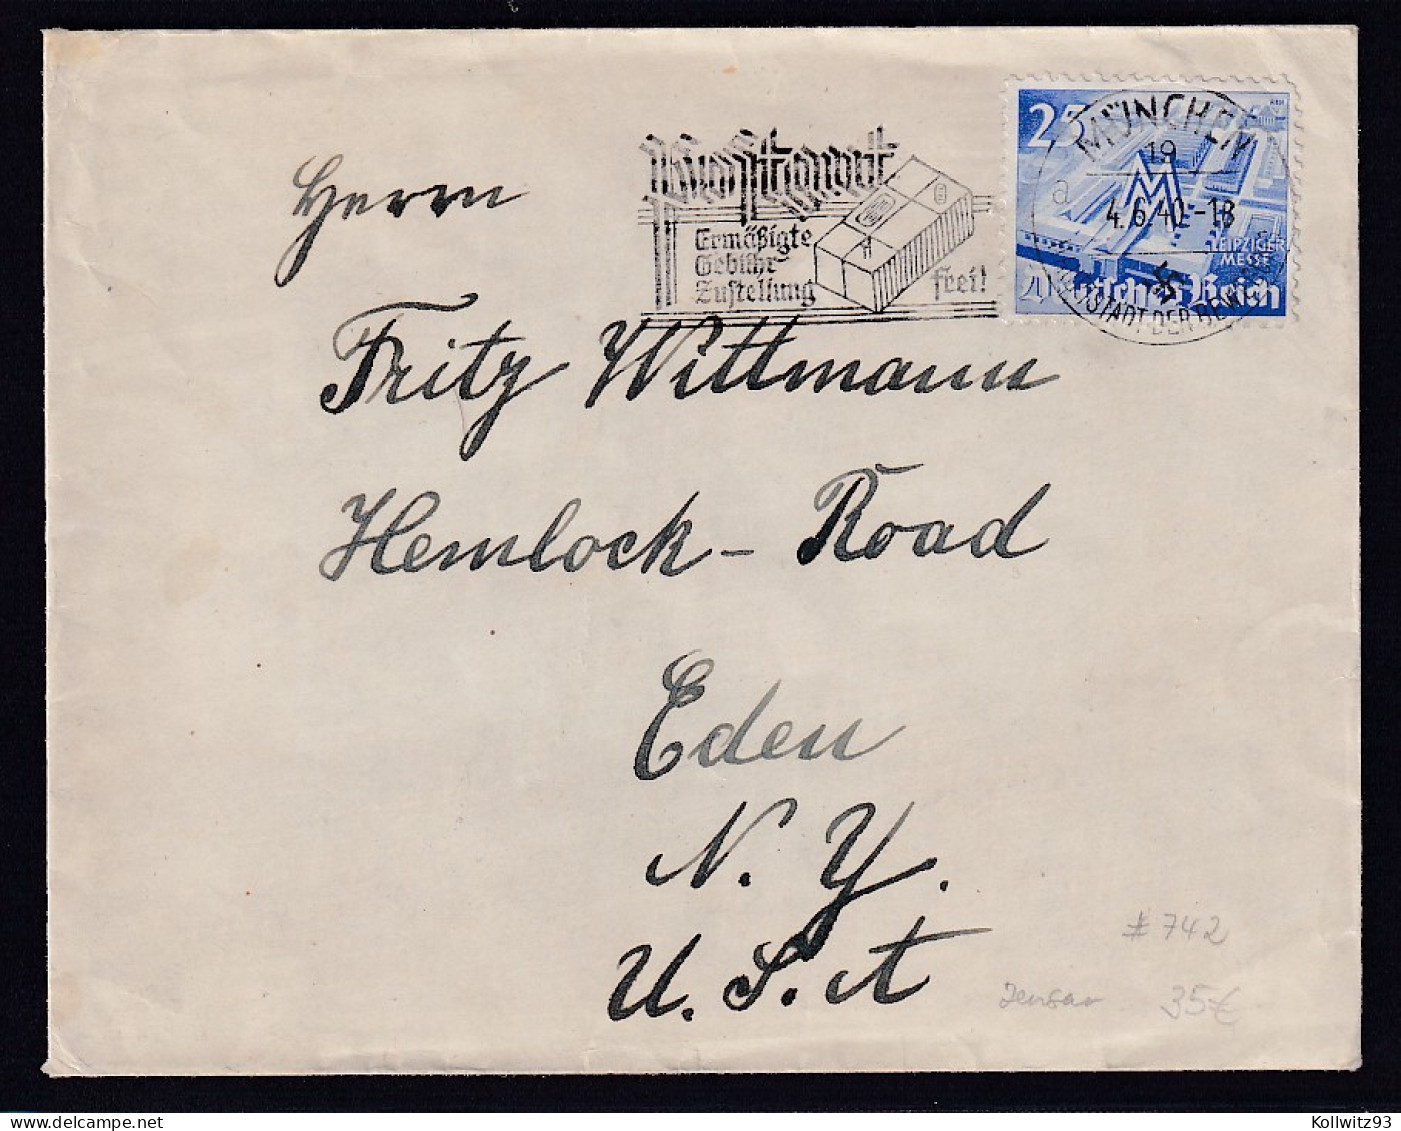 25
MÜNCHEN
19
a
4.6.40-18
LEIPZIGER
MESSE
Reich
STADT DER BEWEGUNG
Ermäßigte
Gebühr
Zustellung frei!
Herrn
Fritz Wittmann
Hemlock - Road
Eden
N. Y.
U. S. A
# 742
35€
Kollwitz93